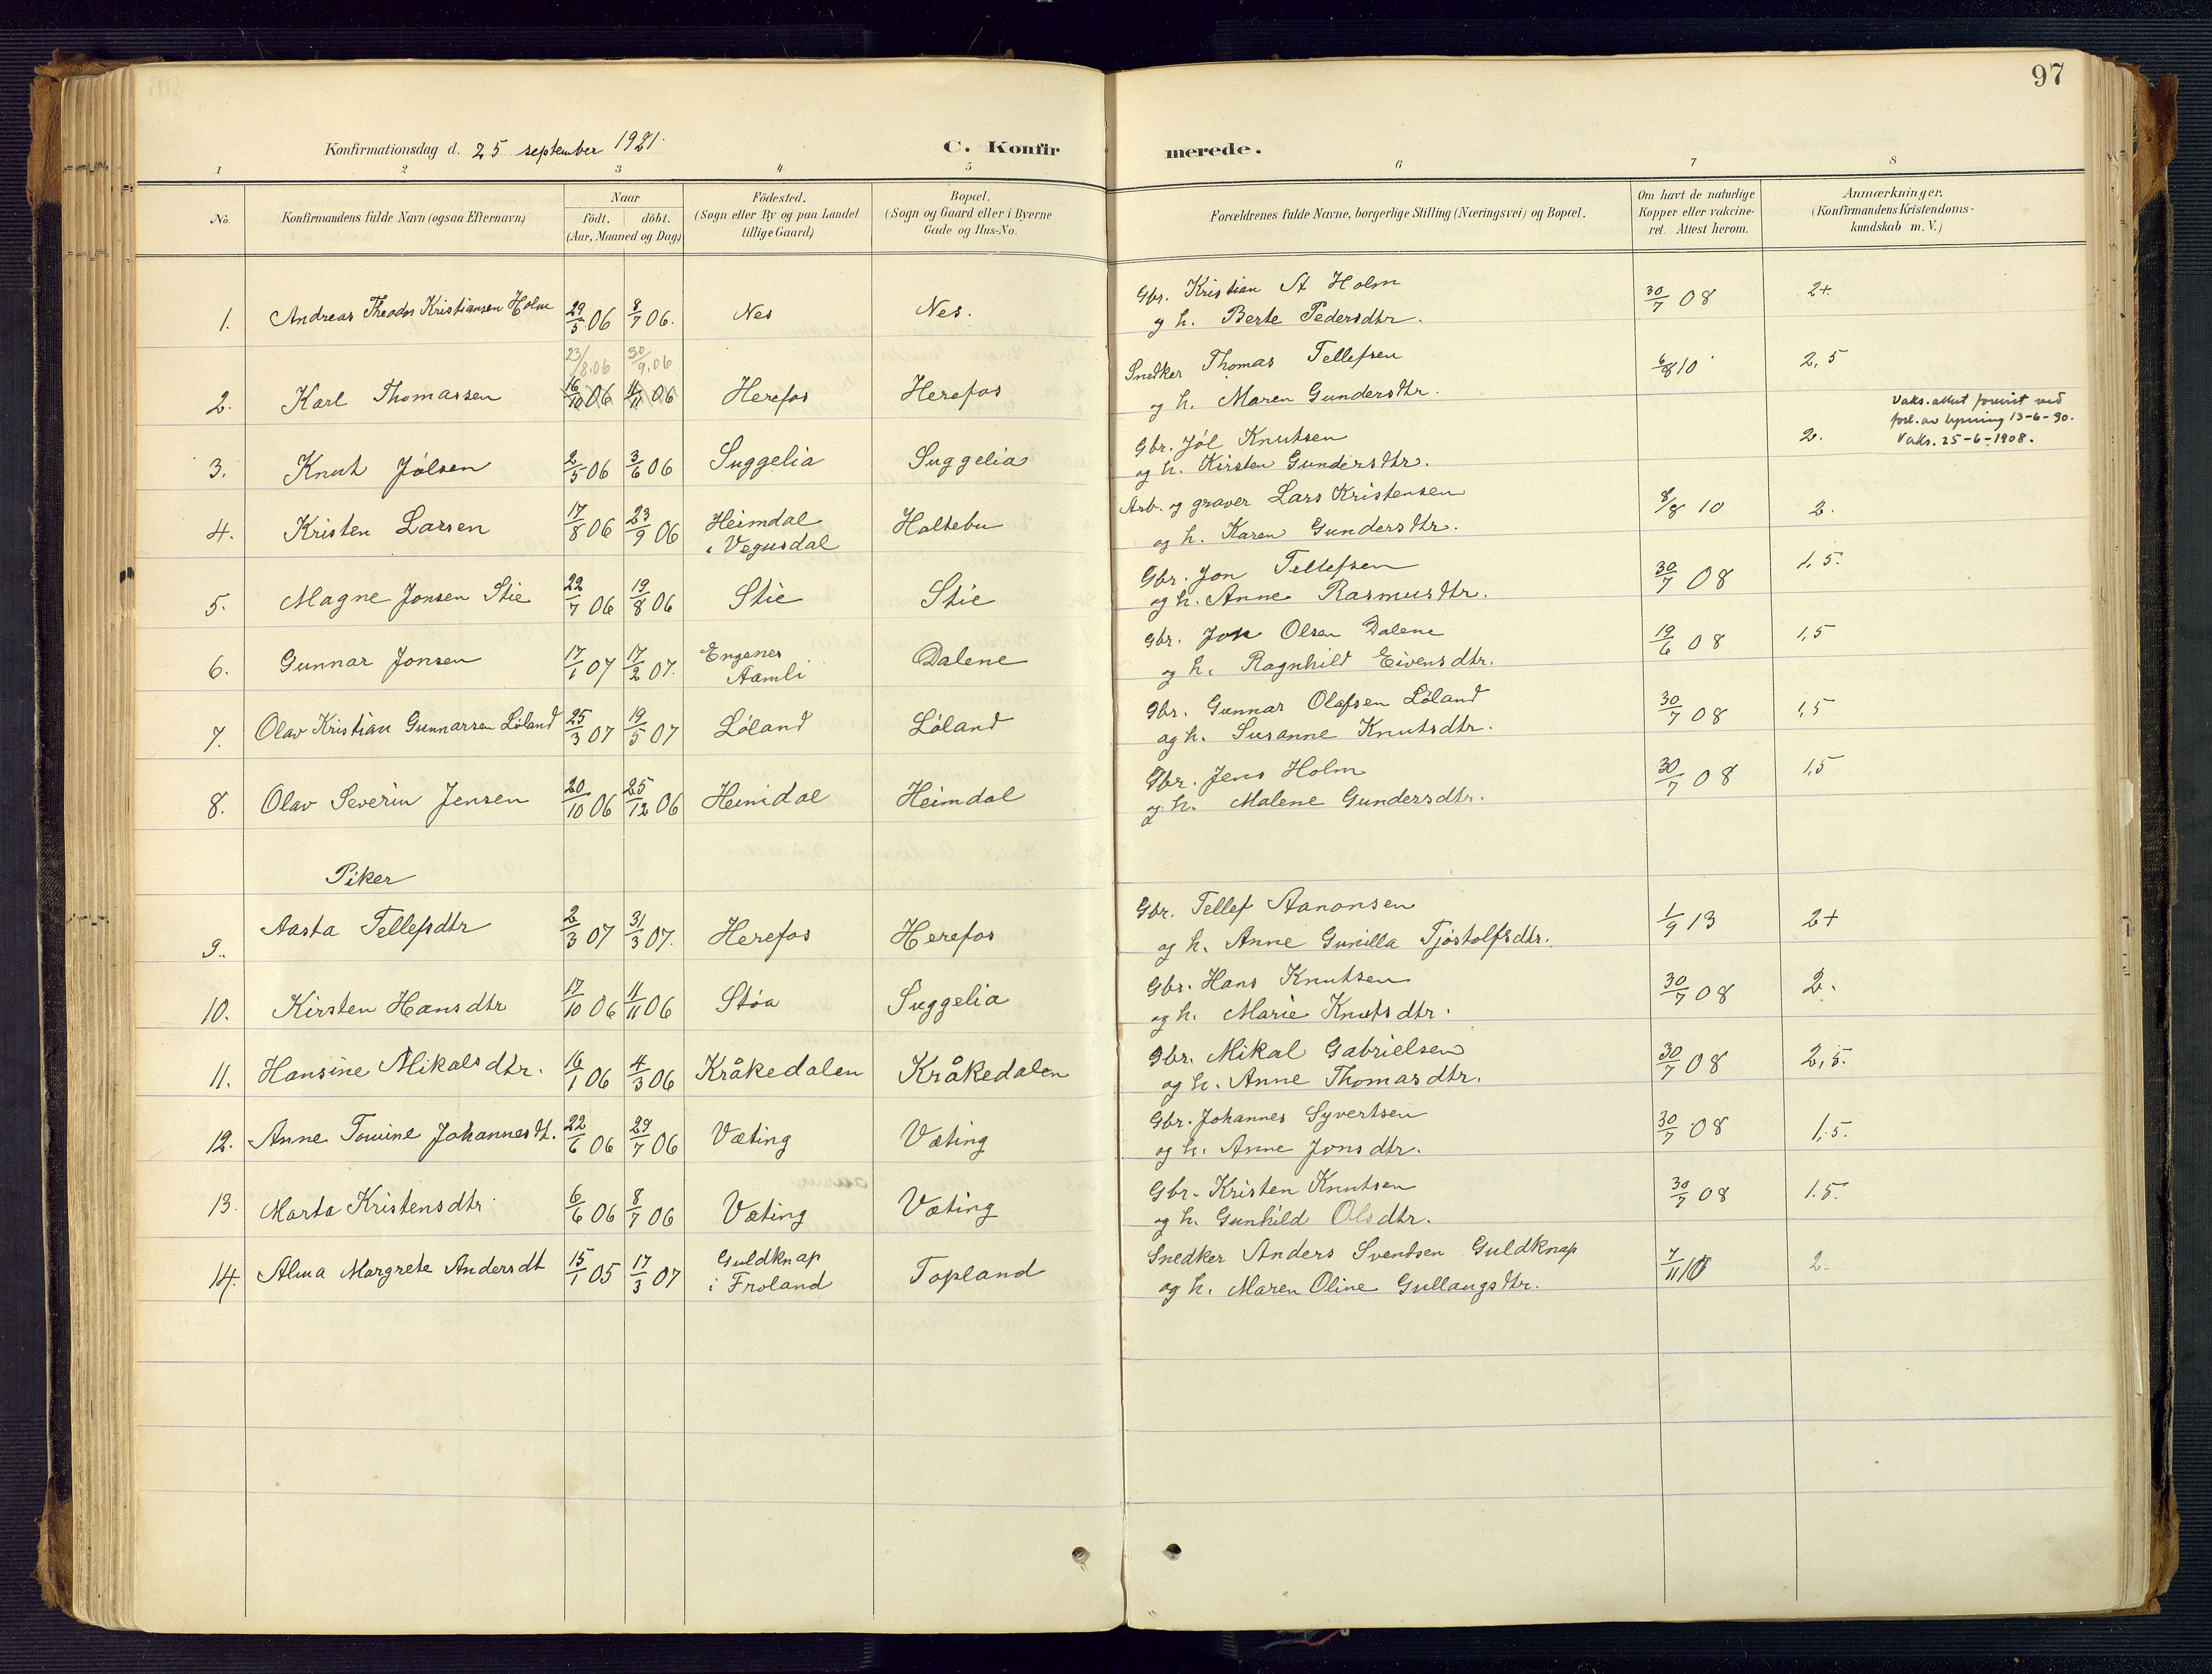 97
Konfirmationsdag d. 25 september 1921.
C. Konfirmerede.
1 2 3 4 5 6 7 8
No.
Konfirmandens fulde Navn (ogsaa Efternavn)
Naar
födt. döbt.
(Aar, Maaned og Dag)
Födested.
(Sogn eller By og paa Landet
tillige Gaard)
Bopæl.
(Sogn og Gaard eller i Byerne
Gade og Hus-No.
Forældrenes fulde Navne, borgerlige Stilling (Næringsvei) og Bopæl.
Om havt de naturlige
Kopper eller vakcine-
ret. Attest herom.
Anmærkninger.
(Konfirmandens Kristendoms-
kundskab m. V.)
1. Andreas Theodor Kristiansen Holm 29/5 06 8/7 06. Nes Nes. Gbr. Kristian A Holm 30/7 08 2+
og h. Berte Pedersdtr.
23/8.06 30/9.06
2. Karl Thomassen 16/10 06 11/11 06 Herefos Herefos Snedker Thomas Tellefsen 6/8 10 2,5
og h. Maren Gundersdtr.
3. Knut Jølsen 2/5 06 3/6 06 Suggelia Suggelia Gbr. Jøl Knutsen 2.
og h. Kirsten Gundersdtr.
Vaks.attest forevist ved
forl. av lysning 13-6-30.
Vaks. 25-6-1908.
4. Kristen Larsen 17/8 06 23/9 06 Heimdal Haltebu Arb. og graver Lars Kristensen 8/8 10 2.
i Vegusdal og h. Karen Gundersdtr.
5. Magne Jonsen Stie 22/7 06 19/8 06 Stie Stie Gbr. Jon Tellefsen 30/7 08 1,5.
og h. Anne Rasmusdtr.
6. Gunnar Jonsen 17/1 07 17/2 07. Engenes Dalene Gbr. Jon Olsen Dalene 19/6 08 1,5
Aamli og h. Ragnhild Eivensdtr.
7. Olav Kristian Gunnarsen Løland 25/3 07 19/5 07 Løland Løland Gbr. Gunnar Olafsen Løland 30/7 08 1,5
og h. Susanne Knutsdtr.
8. Olav Severin Jensen 20/10 06 25/12 06 Heimdal Heimdal Gbr. Jens Holm 30/7 08 1,5
og h. Malene Gundersdtr.
Piker
9. Aasta Tellefsdtr 2/3 07 31/3 07. Herefos Herefos Gbr. Tellef Aanonsen 1/9 13 2+
og h. Anne Gunilla Tjøstolfsdtr.
10. Kirsten Hansdtr 17/10 06 11/11 06 Støa Suggelia Gbr. Hans Knutsen 30/7 08 2.
og h. Marie Knutsdtr.
11. Hansine Mikalsdtr. 16/1 06 4/3 06 Kråkedalen Kråkedalen Gbr. Mikal Gabrielsen 30/7 08 2,5.
og h. Anne Thomasdtr.
12. Anne Tomine Johannesdt. 22/6 06 29/7 06 Væting Væting Gbr. Johannes Syvertsen 30/7 08 1,5.
og h. Anne Jonsdtr.
13. Marta Kristensdtr. 6/6 06 8/7 06 Væting Væting Gbr. Kristen Knutsen 30/7 08 1.5.
og h. Gunhild Olsdtr.
14. Alma Margrete Andersdt 15/1 05 17/3 07 Guldknap Topland Snedker Anders Svendsen Guldknap 7/11 10 2
i Froland og h. Maren Oline Gullaugsdtr.